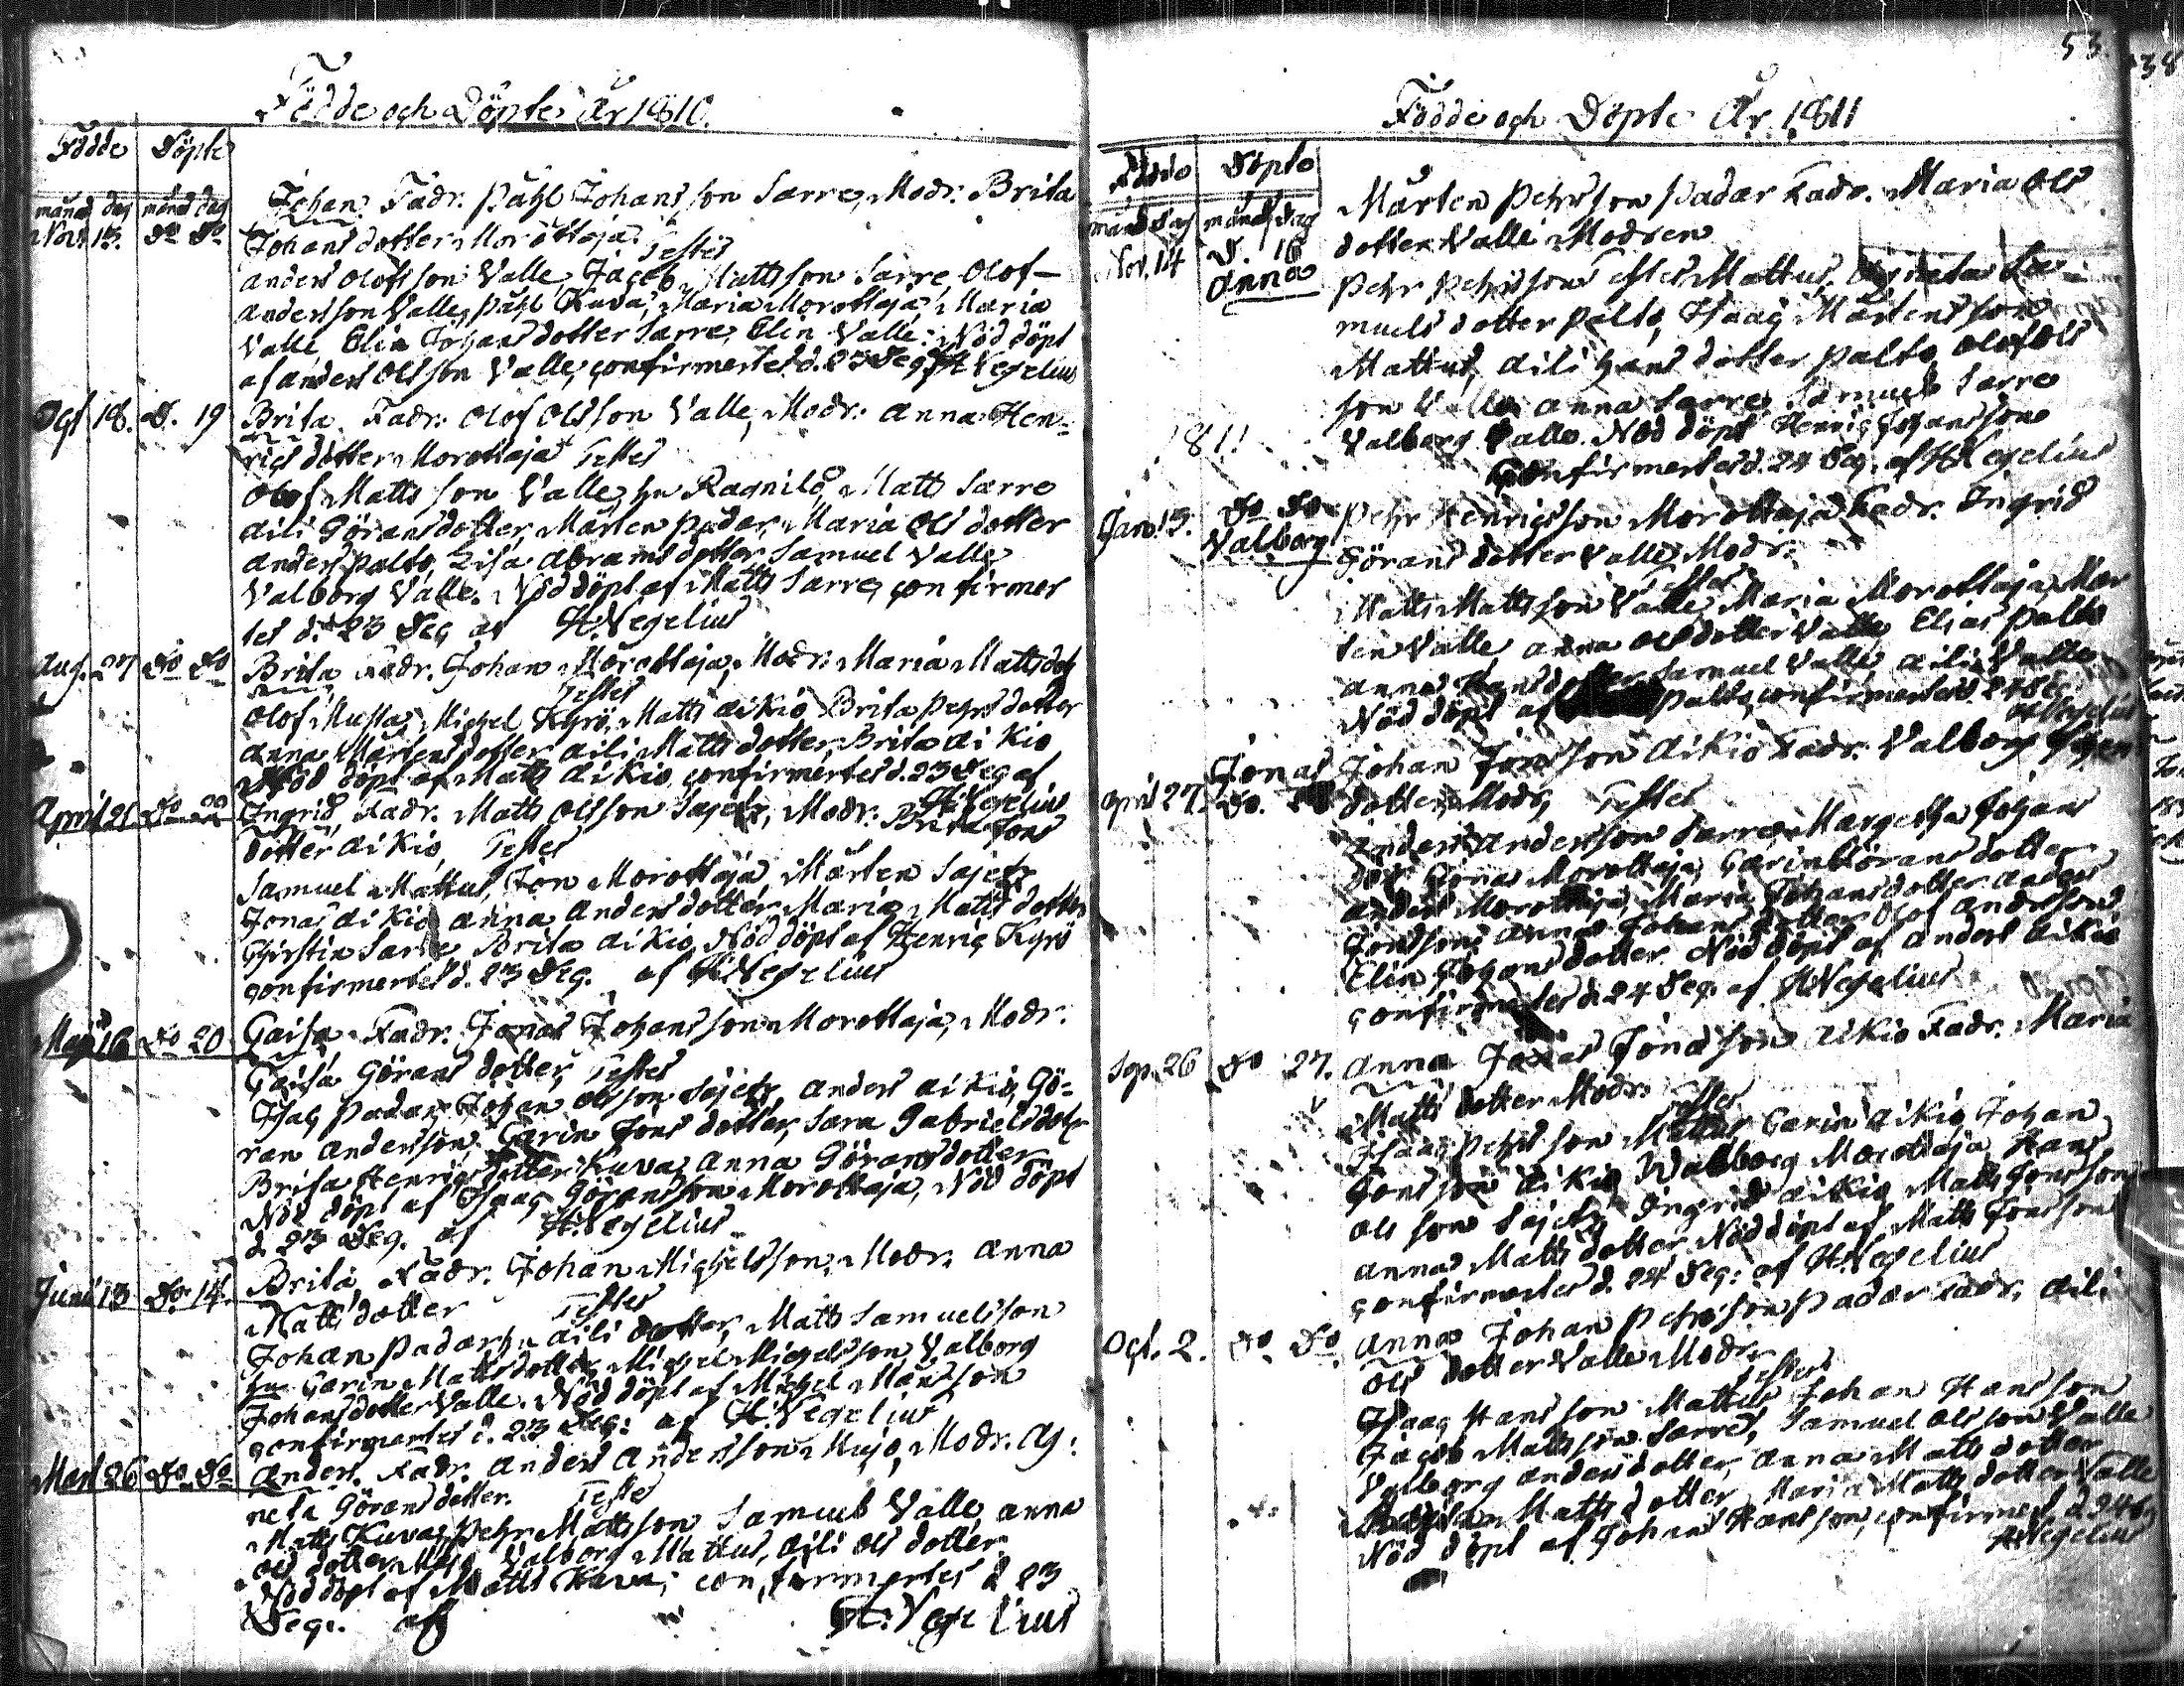 Födde och Döpte År 1810.
Födde Döpte
månad dag månad dag
Johan. Fadr. Påhl Johansson Sarre, Modr. Brita
Nov. 13. Do Do Johansdotter Morottaja. Testes
Anders Olofsson Valle, Jacob Mattsson Sarre, Olof
Andersson Valle, Påhl Kuva, Maria Morottaja, Maria
Valle, Elin Johansdotter Sarre, Elin Valle. Nöd döpt
af Anders Olsson Valle, confirmertes d. 23 Dec. H Wegelius
Oct. 18. D. 19 Brita. Fadr. Olof Olsson Valle, Modr. Anna Hen-
rics dotter Morottaja Testes
Olof Mattsson Valle, hu Ragnild, Matts Sarre
Aili Göransdotter, Mårten Padar, Maria Ols dotter
Anders Palto, Lisa Abrams dotter, Samuel Valle
Valborg Valle. Nöd döpt af Matts Sarre, confirmer
tes d. 23 Dec af H Wegelius
Aug. 27 Do Do Brita Fadr. Johan Morottaja, Modr. Maria Matts dotr
Testes
Olof Musta, Michel Kyrö, Matts Aikio Brita Pehrs dotter
Anna Mårtens dotter Aili Matts dotter, Brita Aikio
Nöd döpt af Matts Aikio, confirmertes d. 23 Dec af
H Wegelius
April 21 Do 22 Ingrid Fadr. Matts Olsson Sajets, Modr. Brita Jons
dotter Aikio, Testes
Samuel Mattus, Jon Morottaja Mårten Sajets
Jonas Aikio Anna Anders dotter Maria Matts dotter
Christin Sarre Brita Aikio, Nöd döpt af Henric Kyrö
confirmertes d. 23 Dec. af H Wegelius
Maji 16 Do 20 Caisa Fadr. Jonas Johansson Morottaja, Modr.
Caisa Görans dotter, Testes
Isac Padar, Johan Olsson Sajets, Anders Aikio, Gö-
ran Andersson, Carin Jons dotter, Sara Gabrielsdotr
Brita Henrics dotter Kuva, Anna Göransdotter
Nöd döpt af Isaac Göransson Morottaja, Nöd döpt
d. 23 Dec. af H Wegelius
Juni 13 Do 14. Brita, Fadr. Johan Michelsson, Modr. Anna
Matts dotter Testes
Johan Padar, hu Aili dotter, Matts Samuelsson
hu Carin Mattsdotter, Michel Michelsson, Valborg
Johansdotter Valle. Nöd döpt af Michel Månsson
confirmertes d. 23 Dec: af H. Wegelius
Mart 26 Do Do Anders. Fadr. Anders Andersson Mujo, Modr. Ag:
neta Göransdotter. Testes
Matts Kuva, Pehr Mattsson Samuel Valle, Anna
Ols dotter Mujo Valborg Mattus, Aili Ols dotter.
Nöd döpt af Matts Kuva, confirmertes d 23
Dec. af H. Wegelius
53
38
Födde och Döpte År 1811
Födde Döpte
månad dag månad dag
Mårten Pehrsson Padar Fadr. Maria Ols
dotter Valle Modren
Nov. 14 D. 16
Anna
Pehr Pehrsson Testes Mattus, Agneta Sa-
muels dotter Palto, Isaac Mårtensson
Mattus, Aili Hans dotter Palto, Olof Ols
son Valle Anna Sarre, Samuel Sarre
Valborg Valle. Nöd döpt Henric Johansson
1811
Confirmertes d. 24 Dec. af H Wegelius
Jan. 13. Do Do Pehr Henricsson Morottaja Fadr. Ingrid
Valborg Görans dotter Valle, Modr.
Testes
Matts Mattsson Valle, Maria Morottaja, Mår
ten Valle Anna Olsdotter Valle Elias Palto
Anna Hansdotter Samuel Valle Aili Valle
Nöd döpt af Palto, confirmertes d. 24 Dec.
H Wegelius
Jonas Johan Jonsson Aikio Fadr. Valborg
April 27. Do. dotter, Modr, Testes
Anders Andersson Sarre, Margetha Johans
dotr Jonas Morottaja, Carin Görans dotter
Anders Morottaja, Maria Johansdotter Anders
Jonsson, Anna Johans dotter Olof Andersson
Elin Johans dotter. Nöd döpt af Anders Aikio
confirmertes d. 24 Dec. af H Wegelius
Sep. 26 Do 27. Anna Jonas Jonasson Aikio Fadr. Maria
Matts dotter Modr. Testes
Isaac Pehrsson Mattus Carin Aikio, Johan
Jonsson Aikio Walborg Morottaja, Hans
Olsson Sajets Ingrid Aikio, Matts Jonsson
Anna Matts dotter. Nöd döpt af Matts Jonsson
confirmertes d. 24 Dec: af H Wegelius
Oct. 2. Do Do. Anna Johan Pehrsson Padar Fadr. Aili
Ols dotter Valle Modr.
Testes
Isaac Hansson Mattus Johan Hansson
Jacob Mattsson Sarre, Samuel Olsson Valle
Valborg Andersdotter, Anna Matts dotter
Matts dotter, Maria Matts dotter Valle
Nöd döpt af Johan Hansson, confirmert. d 24 Dec
H Wegelius